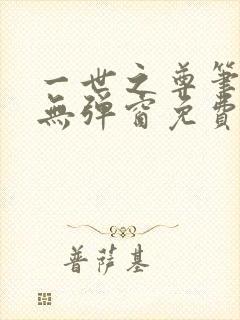 一世之尊筆
無彈窗免費
普薩基